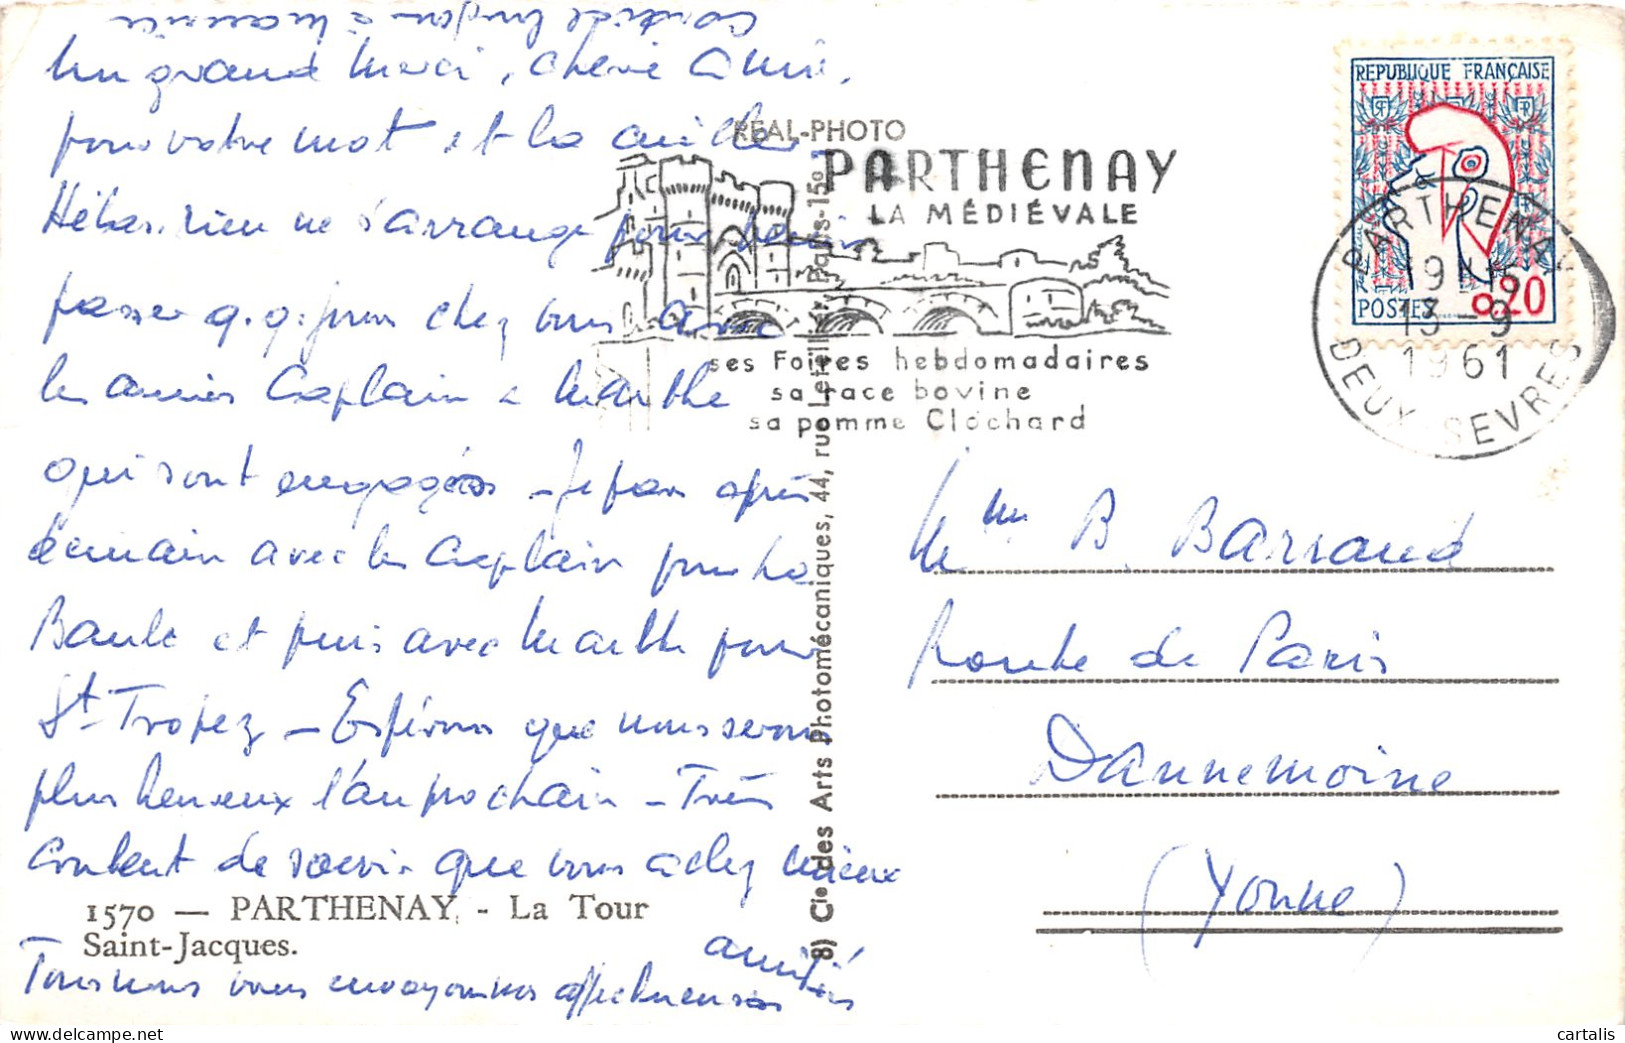 Cordiale bonjour à Maurice
Un grand merci, chère Amie,
pour votre mot et la cueillette
Hélas, rien ne s'arrange pour pouvoir
passer q.q. jours chez vous avec
les amies Caplain & Marthe
qui sont engagées – Je pars après
demain avec les Caplain pour La
Baule et puis avec Marthe pour
St-Tropez – Espérons que nous serons
plus heureux l'an prochain – Très
content de savoir que vous allez mieux
1570 — PARTHENAY. - La Tour
Saint-Jacques.
Tous nous vous envoyons nos affectueuses
amitiés
REAL-PHOTO
8) Cie des Arts Photomécaniques, 44, rue Letellier, Paris-15e
PARTHENAY
LA MÉDIÉVALE
ses Foires hebdomadaires
sa race bovine
sa pomme Clochard
REPUBLIQUE FRANÇAISE
RF
RF
POSTES 0.20
PARTHENAY
19 H 15
13 - 9
1961
DEUX-SEVRES
Mme B. Barraud
Route de Paris
Dannemoine
(Yonne)
cartalis